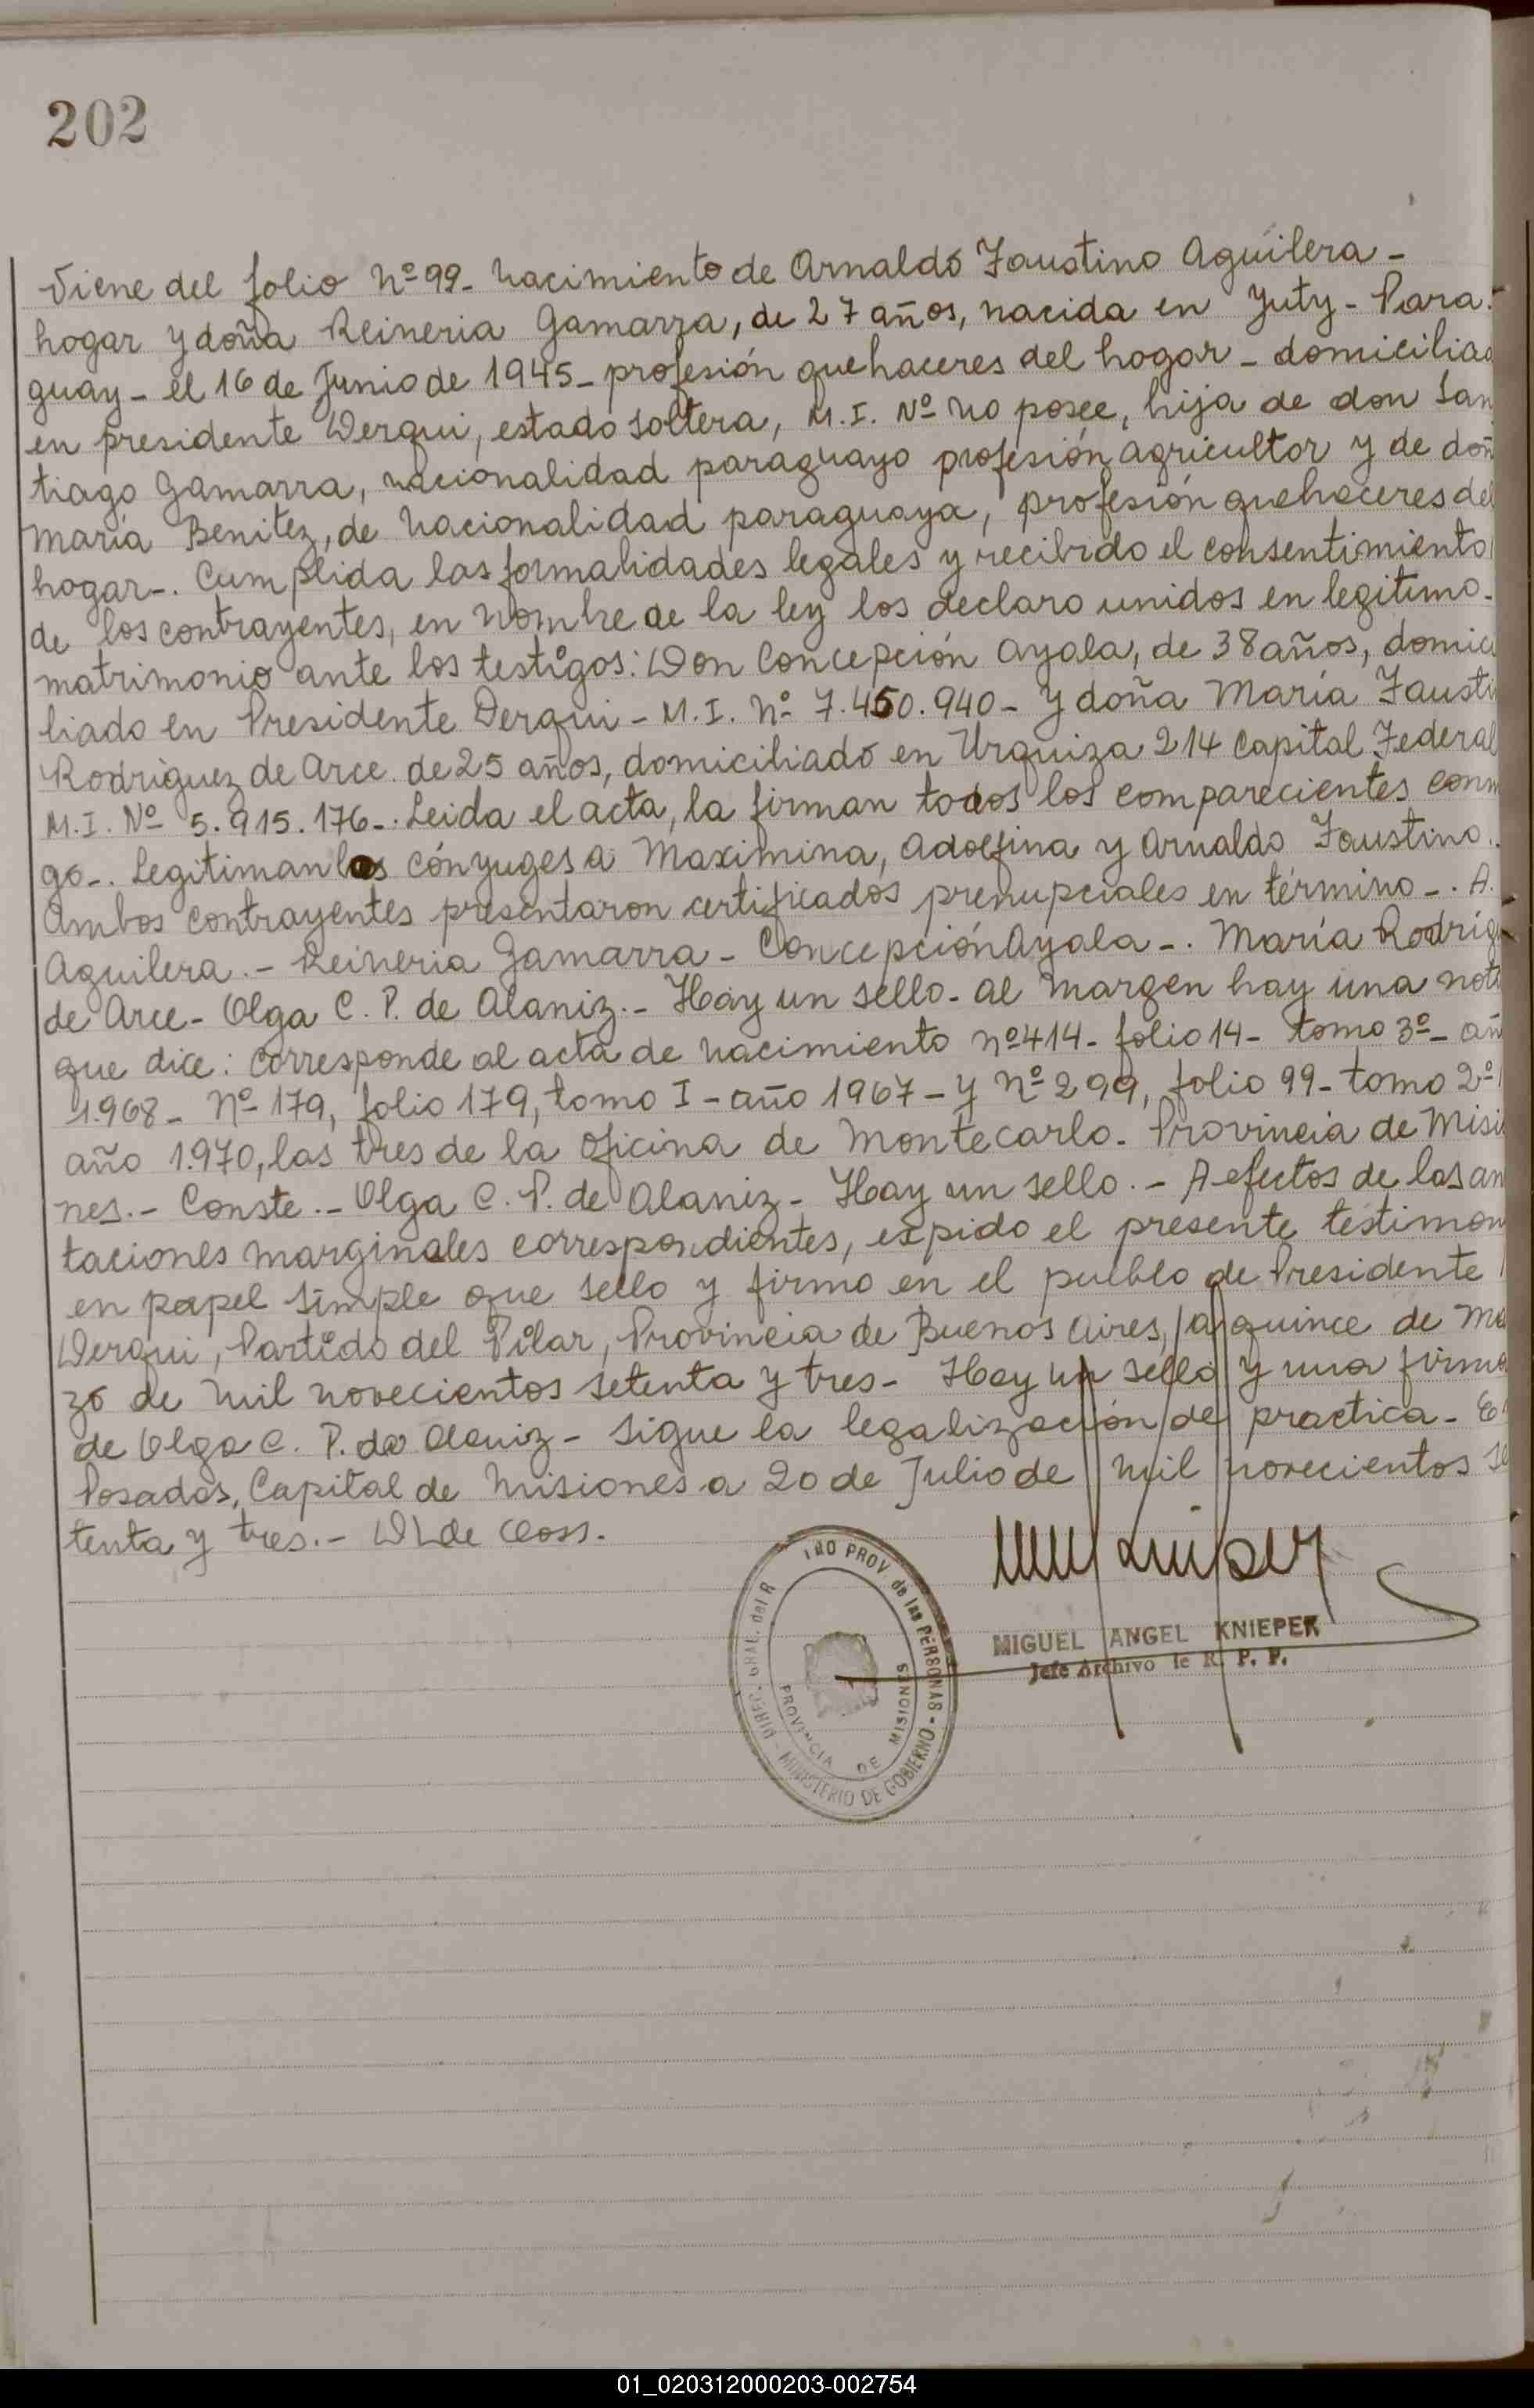 202
Viene del folio Nº 99- nacimiento de Arnaldo Faustino Aguilera-
hogar y doña Reineria Gamarra, de 27 años, nacida en Yuty- Para-
guay- el 16 de Junio de 1945- profesión quehaceres del hogar- domicilia
en presidente Derqui, estado soltera, M.I. Nº no posee, hija de don San
tiago Gamarra, nacionalidad paraguayo profesión agricultor y de doñ
María Benitez, de nacionalidad paraguaya, profesión quehaceres del
hogar-. Cumplida las formalidades legales y recibido el consentimiento
de los contrayentes, en nombre de la ley los declaro unidos en legitimo-
matrimonio ante los testigos: Don Concepción Ayala, de 38 años, domici
liado en Presidente Derqui- M.I. Nº 7.450.940- y doña María Fausti
Rodriguez de Arce. de 25 años, domiciliado en Urquiza 214 Capital Federal
M.I. Nº 5.915.176-. Leida el acta, la firman todos los comparecientes conm
go-. Legitiman los cónyuges a Maximina, Adolfina y Arnaldo Faustino.
Ambos contrayentes presentaron certificados prenupciales en término-. A.
Aguilera.- Reineria Gamarra- Concepción Ayala-. María Rodríg
de Arce- Olga C. P. de Alaniz.- Hay un sello- al margen hay una nota
que dice: corresponde al acta de nacimiento nº 414- folio 14- tomo 3º- añ
1.968- Nº 179, folio 179, tomo I- año 1967- y Nº 299, folio 99- tomo 2º
año 1.970, las tres de la oficina de Montecarlo- Provincia de Misi
nes.- Conste.- Olga C. P. de Alaniz- Hay un sello.- A efectos de las an
taciones marginales correspondientes, expido el presente testimon
en papel simple que sello y firmo en el pueblo de Presidente
Derqui, Partido del Pilar, Provincia de Buenos Aires, a quince de Ma
zo de mil novecientos setenta y tres- Hay un sello y una firma
de Olga C. P. de Alaniz- Sigue la legalización de practica- E
Posadas, Capital de Misiones a 20 de Julio de mil novecientos se
tenta y tres.-
DIREC. GRAL. del R PROV. de las PERSONAS - MINISTERIO DE GOBIERNO
PROVINCIA DE MISIONES
MIGUEL ANGEL KNIEPER
Jefe Archivo de R. P. P.
01_020312000203-002754